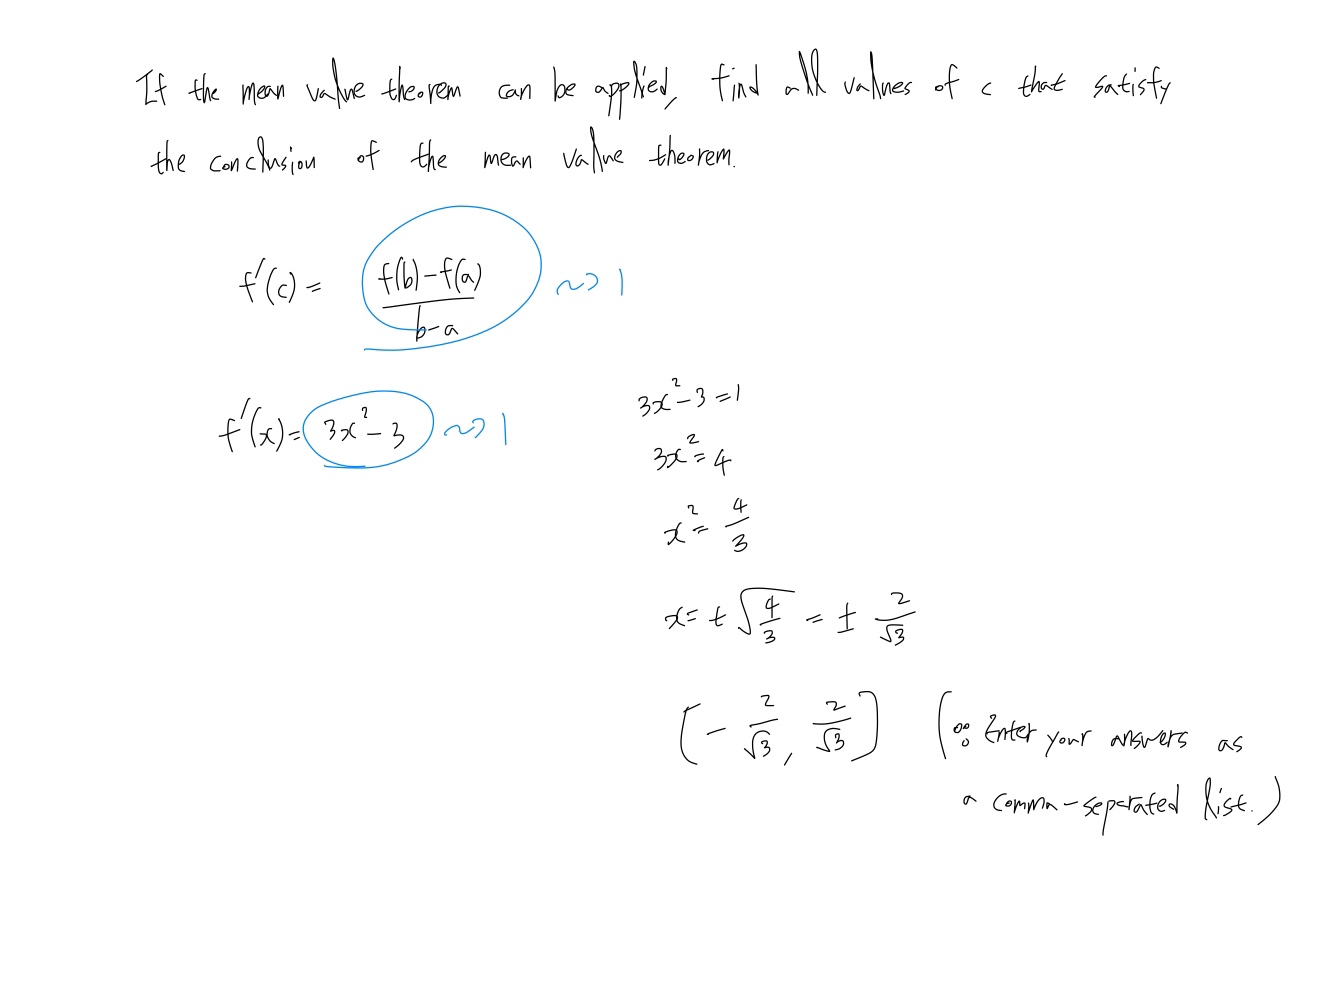 If the mean value theorem can be applied, find all values of c that satisfy
the conclusion of the mean value theorem.
f'(c) = (f(b)-f(a))/(b-a) ~> 1
f'(x) = 3x² - 3 ~> 1
3x² - 3 = 1
3x² = 4
x² = 4/3
x = ± √(4/3) = ± 2/√3
[- 2/√3, 2/√3] (∵ Enter your answers as
a comma-separated list.)